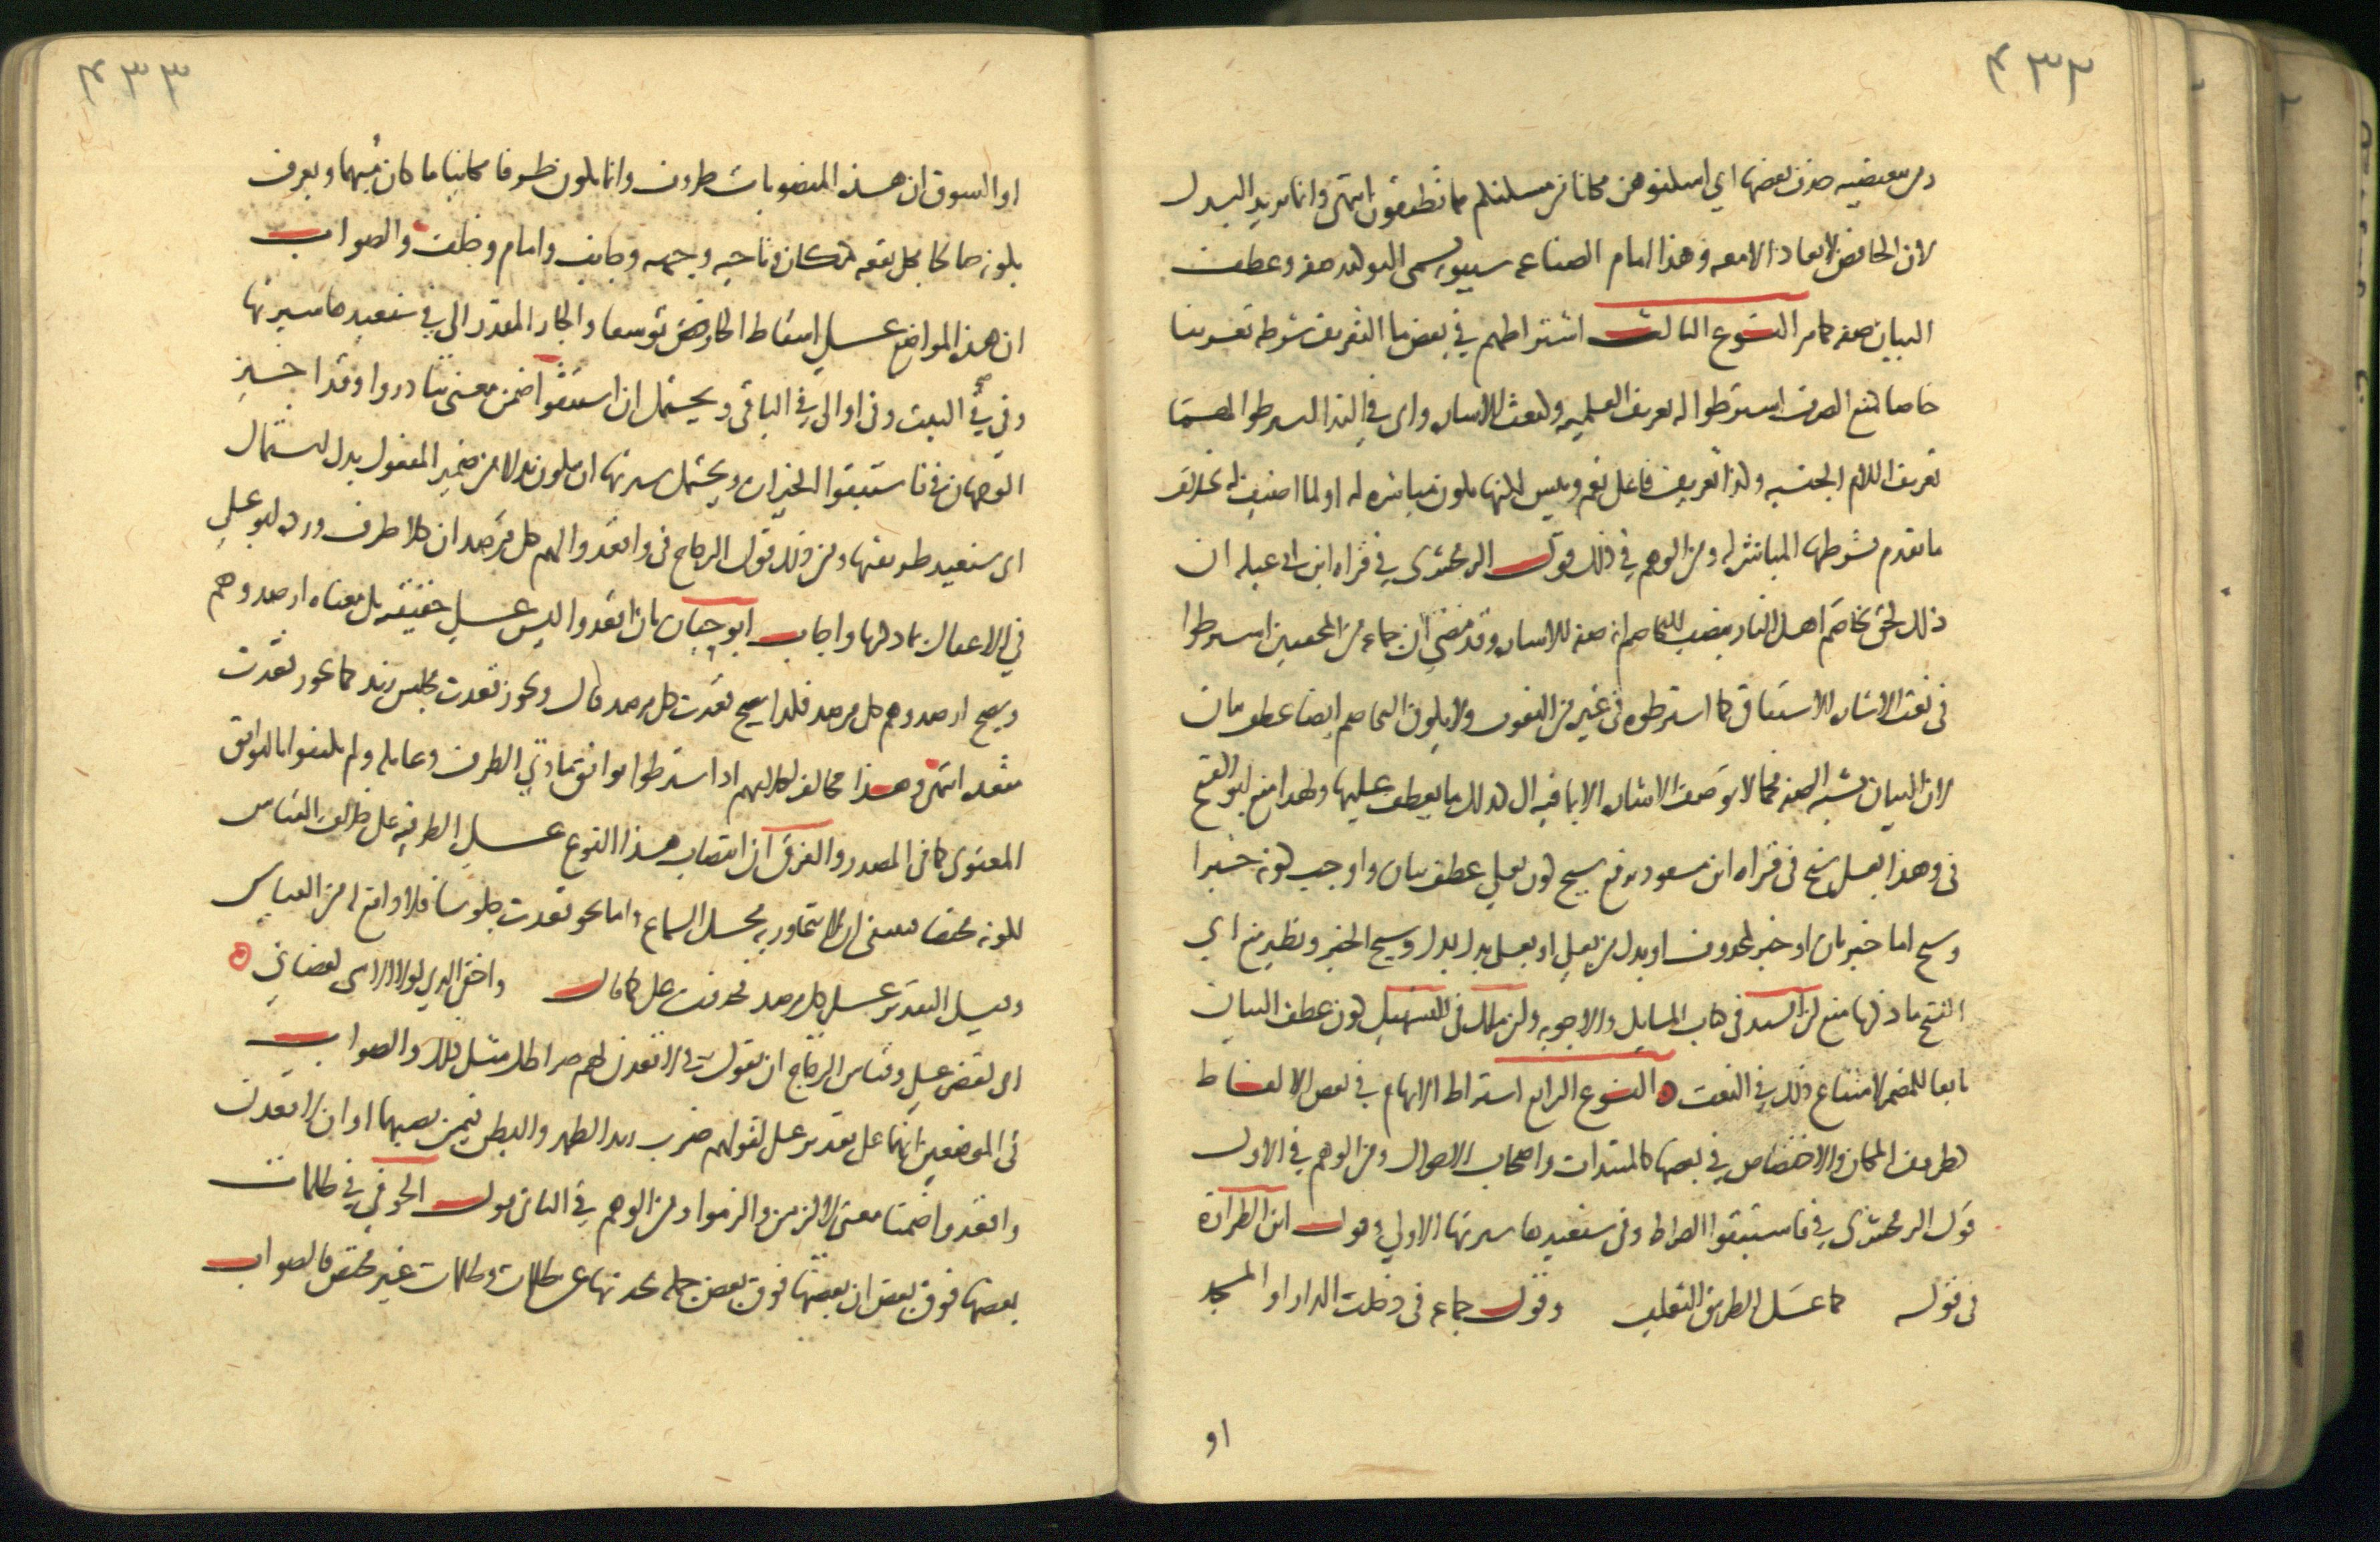 ٤٣٢
ومن تبعيضيه حذف بعضها اي اسكنوهن مكانا من مسكنكم مما تطيقون انتهى وانما يريد البدل
لان الخافض لا يعاد الا معه وهذا امام الصناعه سيبويه يسمى التوكيد صفه وعطف
البيان صفه كما مر النوع الثالث اشتراطهم في بعض ما التعريف شرطه تعريفا
خاصا كمنع الصرف اشترطوا له تعريف العلميه وكنعت الاشاره واى في الندا اشترطوا لهما
تعريف اللام الجنسيه وكذا تعريف فاعل نعم وبيس لكنها تكون مباشره له او لما اضيف له بخلاف
ما تقدم فشرطها المباشره له ومن الوهم في ذلك قول الزمخشرى في قراه ابن ابي عبله ان
ذلك لحق تخاصم اهل النار بنصب تخاصم انه صفه للاشاره وقد مضى ان جماعه من المحققين اشترطوا
فى نعت الاشاره الاشتقاق كما اشترطوه فى غيره من النعوت ولا يكون التخاصم ايضا عطف بيان
لان البيان يشبه الصفه فكما لا توصف الاشاره الا بما فيه ال كذلك ما يعطف عليها ولهذا منع ابو الفتح
فى وهذا بعلى شيخ فى قراه ابن مسعود برفع شيخ كون بعلي عطف بيان واوجب كونه خبرا
وشيخ اما خبر ثان او خبر لمحذوف او بدل من بعلي او بعلى بدل وشيخ الخبر ونظير منع ابي
الفتح ما ذكرنا منع ابن السيد فى كتاب المسايل والاجوبه وابن مالك فى التسهيل كون عطف البيان
تابعا للمضمر لامتناع ذلك في النعت النوع الرابع اشتراط الابهام في بعض الالفاظ
كظروف المكان والاختصاص في بعضها كالمبتدات واصحاب الاحوال ومن الوهم في الاول
قول الزمخشرى في فاستبقوا الصراط وفى سنعيدها سيرتها الاولي وقول ابن الطراوة
فى قوله كما عسل الطريق الثعلب وقول جماعه فى دخلت الدار او المسجد
او
٤٣٣
او السوق ان هذه المنصوبات ظروف وانما يكون ظرفا مكانيا ما كان مبهما ويعرف
بكونه صالحا لكل بقعه كمكان وناحيه وجهه وجانب وامام وخلف والصواب
ان هذه المواضع على اسقاط الخافض توسعا والجار المقدر الى في سنعيدها سيرتها
وفي في البيت وفى او الى في الباقى ويحتمل ان استبقوا ضمن معنى تبادروا وقد اجيز
الوجهان في فاستبقوا الخيرات ويحتمل سيرتها ان يكون بدلا من ضمير المفعول بدل اشتمال
اى سنعيد طريقتها ومن ذلك قول الزجاج فى واقعدوا لهم كل مرصد ان كلا ظرف ورده ابو علي
في الاغفال بما ذكرنا واجاب ابو حيان بان اقعدوا ليس على حقيقته بل معناه ارصدوهم
ويصح ارصدوهم كل مرصد فكذا يصح قعدت كل مرصد قال ويجوز قعدت مجلس زيد كما يجوز قعدت
مقعده انتهى وهذا مخالف لكلامهم اذ اشترطوا توافق مادتي الظرف وعامله ولم يكتفوا بالتوافق
المعنوى كما فى المصدر والفرق ان انتصاب هذا النوع على الظرفيه على خلاف القياس
لكونه مختصا فينبغى ان لا يتجاوز به محل السماع واما نحو قعدت جلوسا فلا دافع له من القياس
وقيل التقدير على كل مرصد فحذفت على كما قال واخفى الذي لولا الاسى لقضاني
اى لقضى علي وقياس الزجاج ان يقول في لاقعدن لهم صراطك مثل ذلك والصواب
فى الموضعين انهما على تقدير على كقولهم ضرب زيد الظهر والبطن فيمن نصبهما او ان لاقعدن
واقعدوا ضمنا معنى لالزمن والزموا ومن الوهم في الثانى قول الحوفي في ظلمات
بعضها فوق بعض ان بعضها فوق بعض جمله مخبر بها عن ظلمات وظلمات غير مختص فالصواب